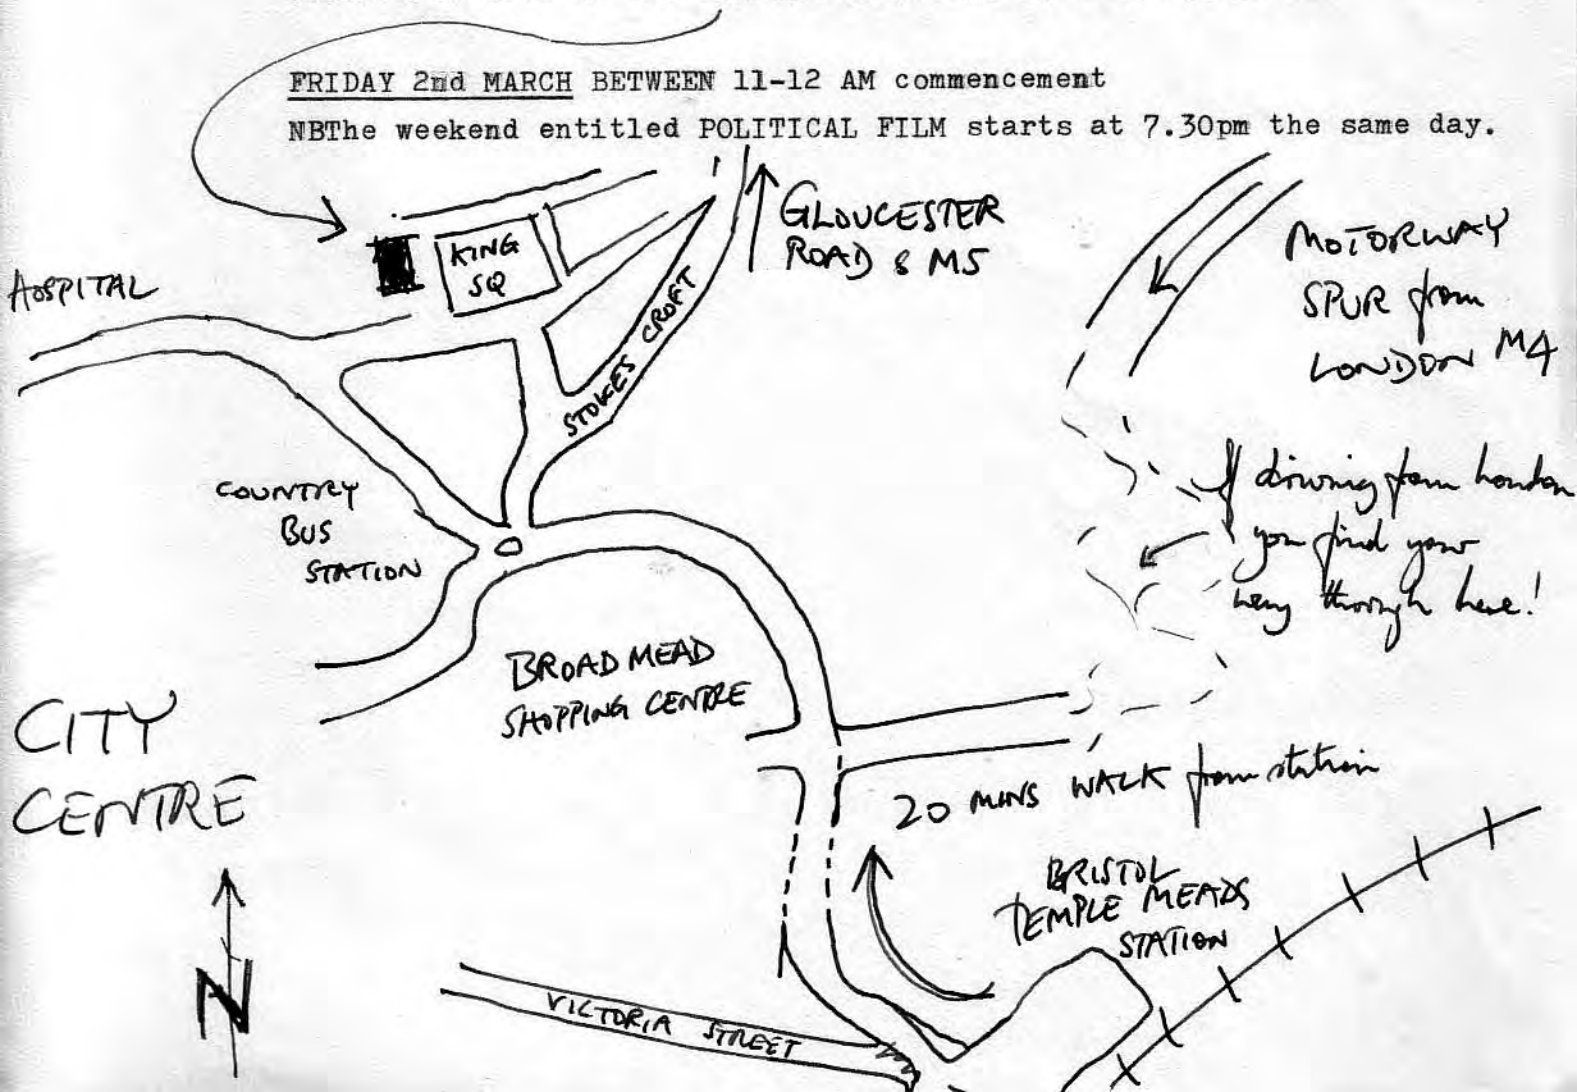 FRIDAY 2nd MARCH BETWEEN 11-12 AM commencement
NBThe weekend entitled POLITICAL FILM starts at 7.30pm the same day.
GLOUCESTER
ROAD & M5
MOTORWAY
SPUR from
LONDON M4
KING
SQ
HOSPITAL
STOKES CROFT
If driving from London
you find your
way through here!
COUNTRY
BUS
STATION
BROADMEAD
SHOPPING CENTRE
CITY
CENTRE
20 MINS WALK from station
BRISTOL
TEMPLE MEADS
STATION
N
VICTORIA STREET